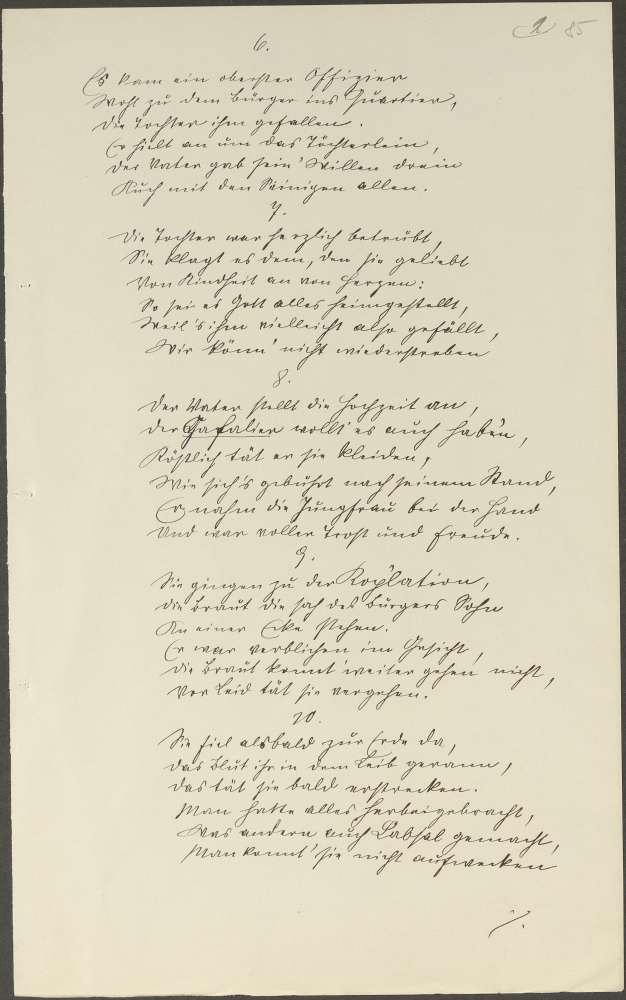 2 85
6.
Es kam ein oberster Offizier
Wohl zu dem Bürger ins Quartier,
Die Tochter ihm gefallen.
Er hielt an um das Töchterlein,
Der Vater gab sein' Willen drein
Auch mit den Seinigen allen.
7.
Die Tochter war herzlich betrübt,
Sie klagt es dem, den sie geliebt
Von Kindheit an von Herzen:
So sei es Gott alles heimgestellt,
Weil's ihm vielleicht also gefällt,
Wir könn' nicht wiederstreben
8.
Der Vater stellt die Hochzeit an,
Der Gafalier wollt' es auch haben,
Köstlich tät er sie kleiden,
Wie sich's gebührt nach seinem Stand,
Er nahm die Jungfrau bei der Hand
Und war voller Trost und Freude.
9.
Sie gingen zu der Koplation,
Die Braut die sah des Bürgers Sohn
An einer Ecke stehen.
Er war verblichen im Gesicht,
Die Braut konnt' weiter gehen nicht,
Vor Leid tät sie vergehen.
10.
Sie fiel alsbald zur Erde da,
Das Blut ihr in dem Leib gerann,
Das tät sie bald erstrecken.
Man hatte alles herbeigebracht,
Was andern auch Labsal gemacht,
Man konnt' sie nicht aufwecken
./.